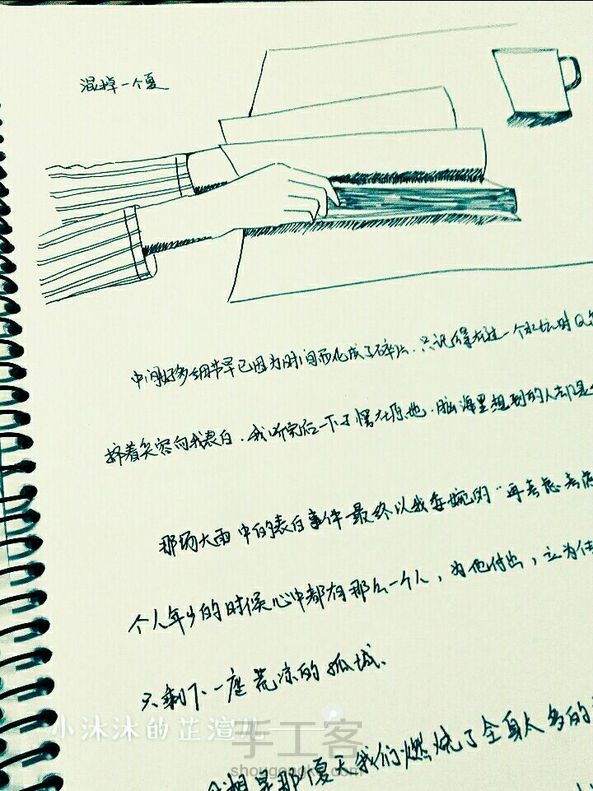 混掉一个夏
中间好多细节早已因为时间而化成了碎片.只记得走过一个水坑时
挤着笑容向我表白.我听完后一下子愣在原地.脑海里想到的人却是
那场大雨中的表白事件最终以我委婉的“再考虑考虑
个人年少的时候心中都有那么一个人,为他付出,立为信
只剩下一座荒凉的孤城.
小沐沐的芷渲
手工客
是那个夏天我们燃烧了全身太多的